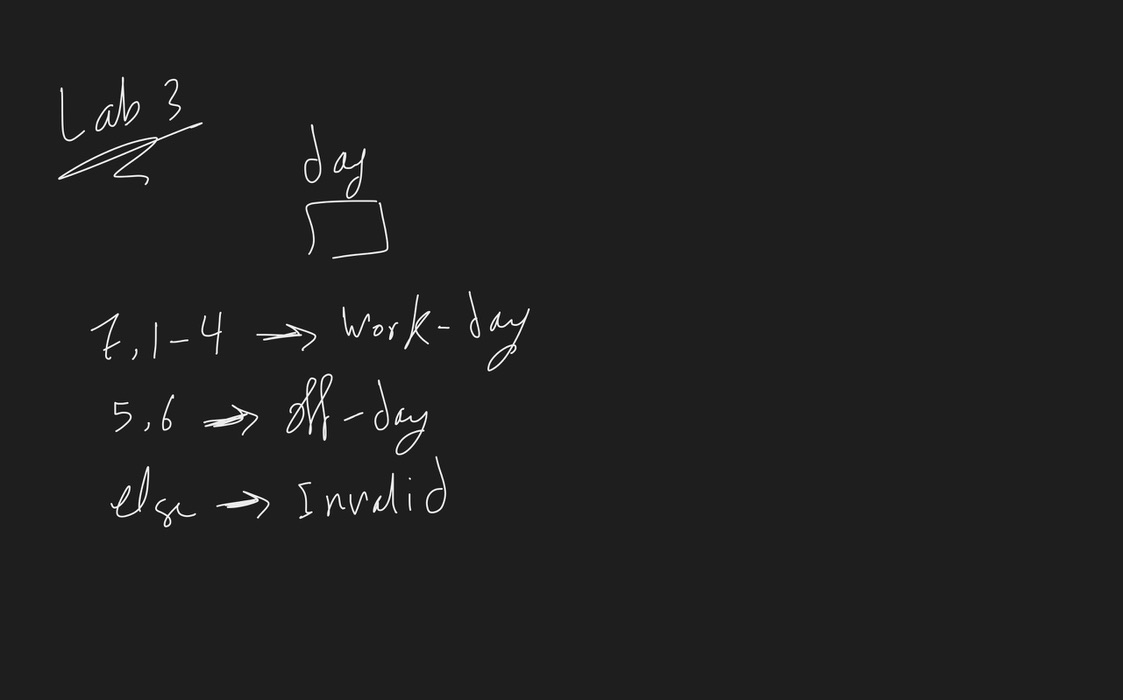 Lab 3
day
7, 1-4 → Work-day
5, 6 → off-day
else → Invalid